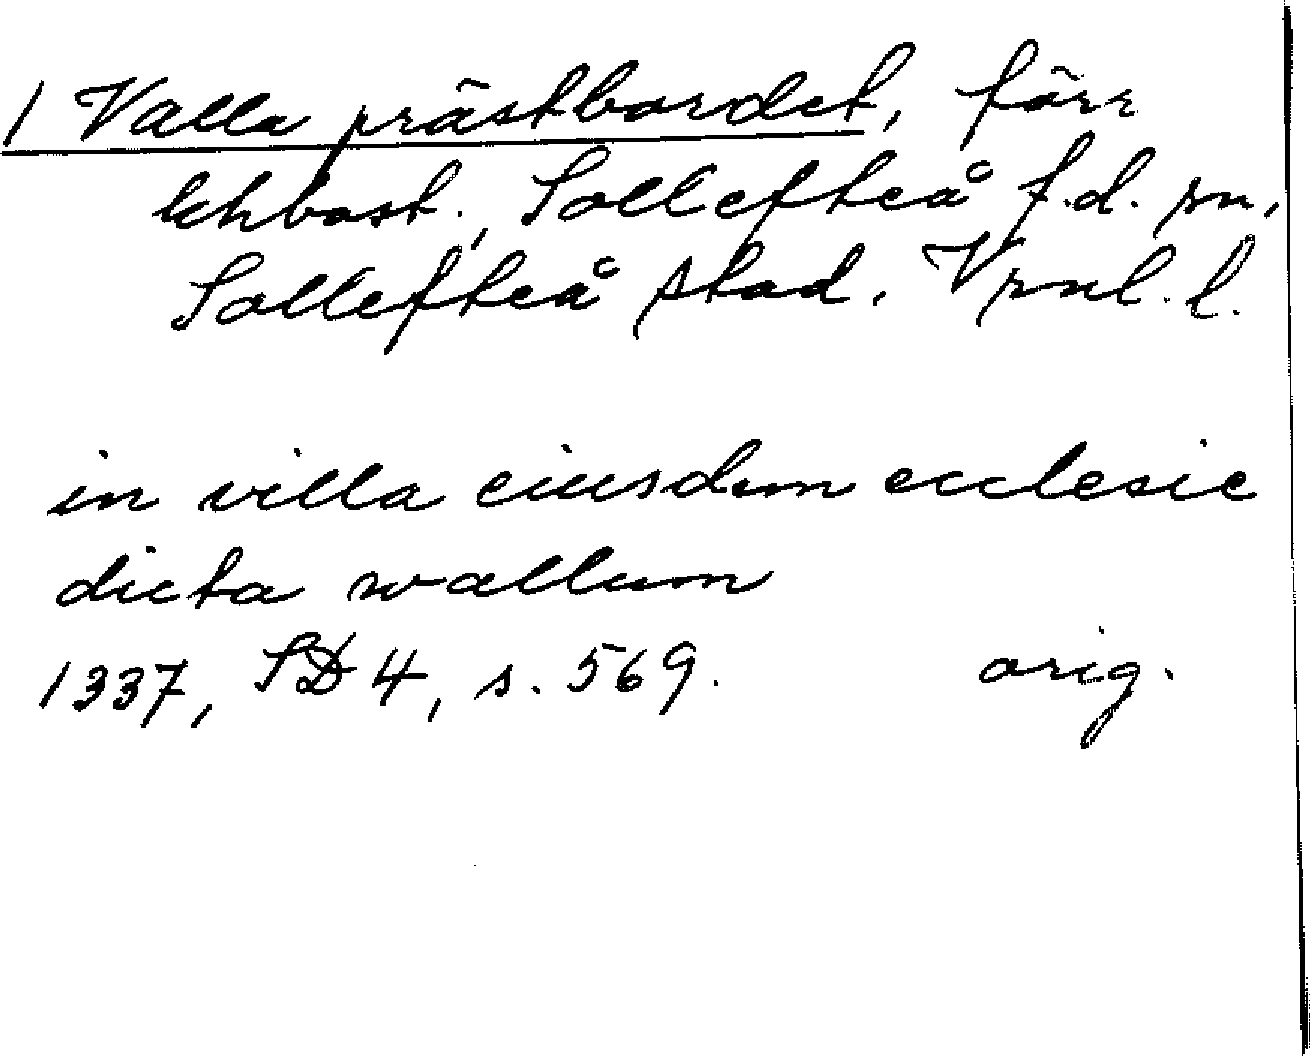 / Valla prästbordet, förr
khbost., Sollefteå f.d. sn,
Sollefteå stad. Vrnl. l.
in villa eiusdem ecclesie
dicta wallum
1337, SD 4, s. 569. orig.